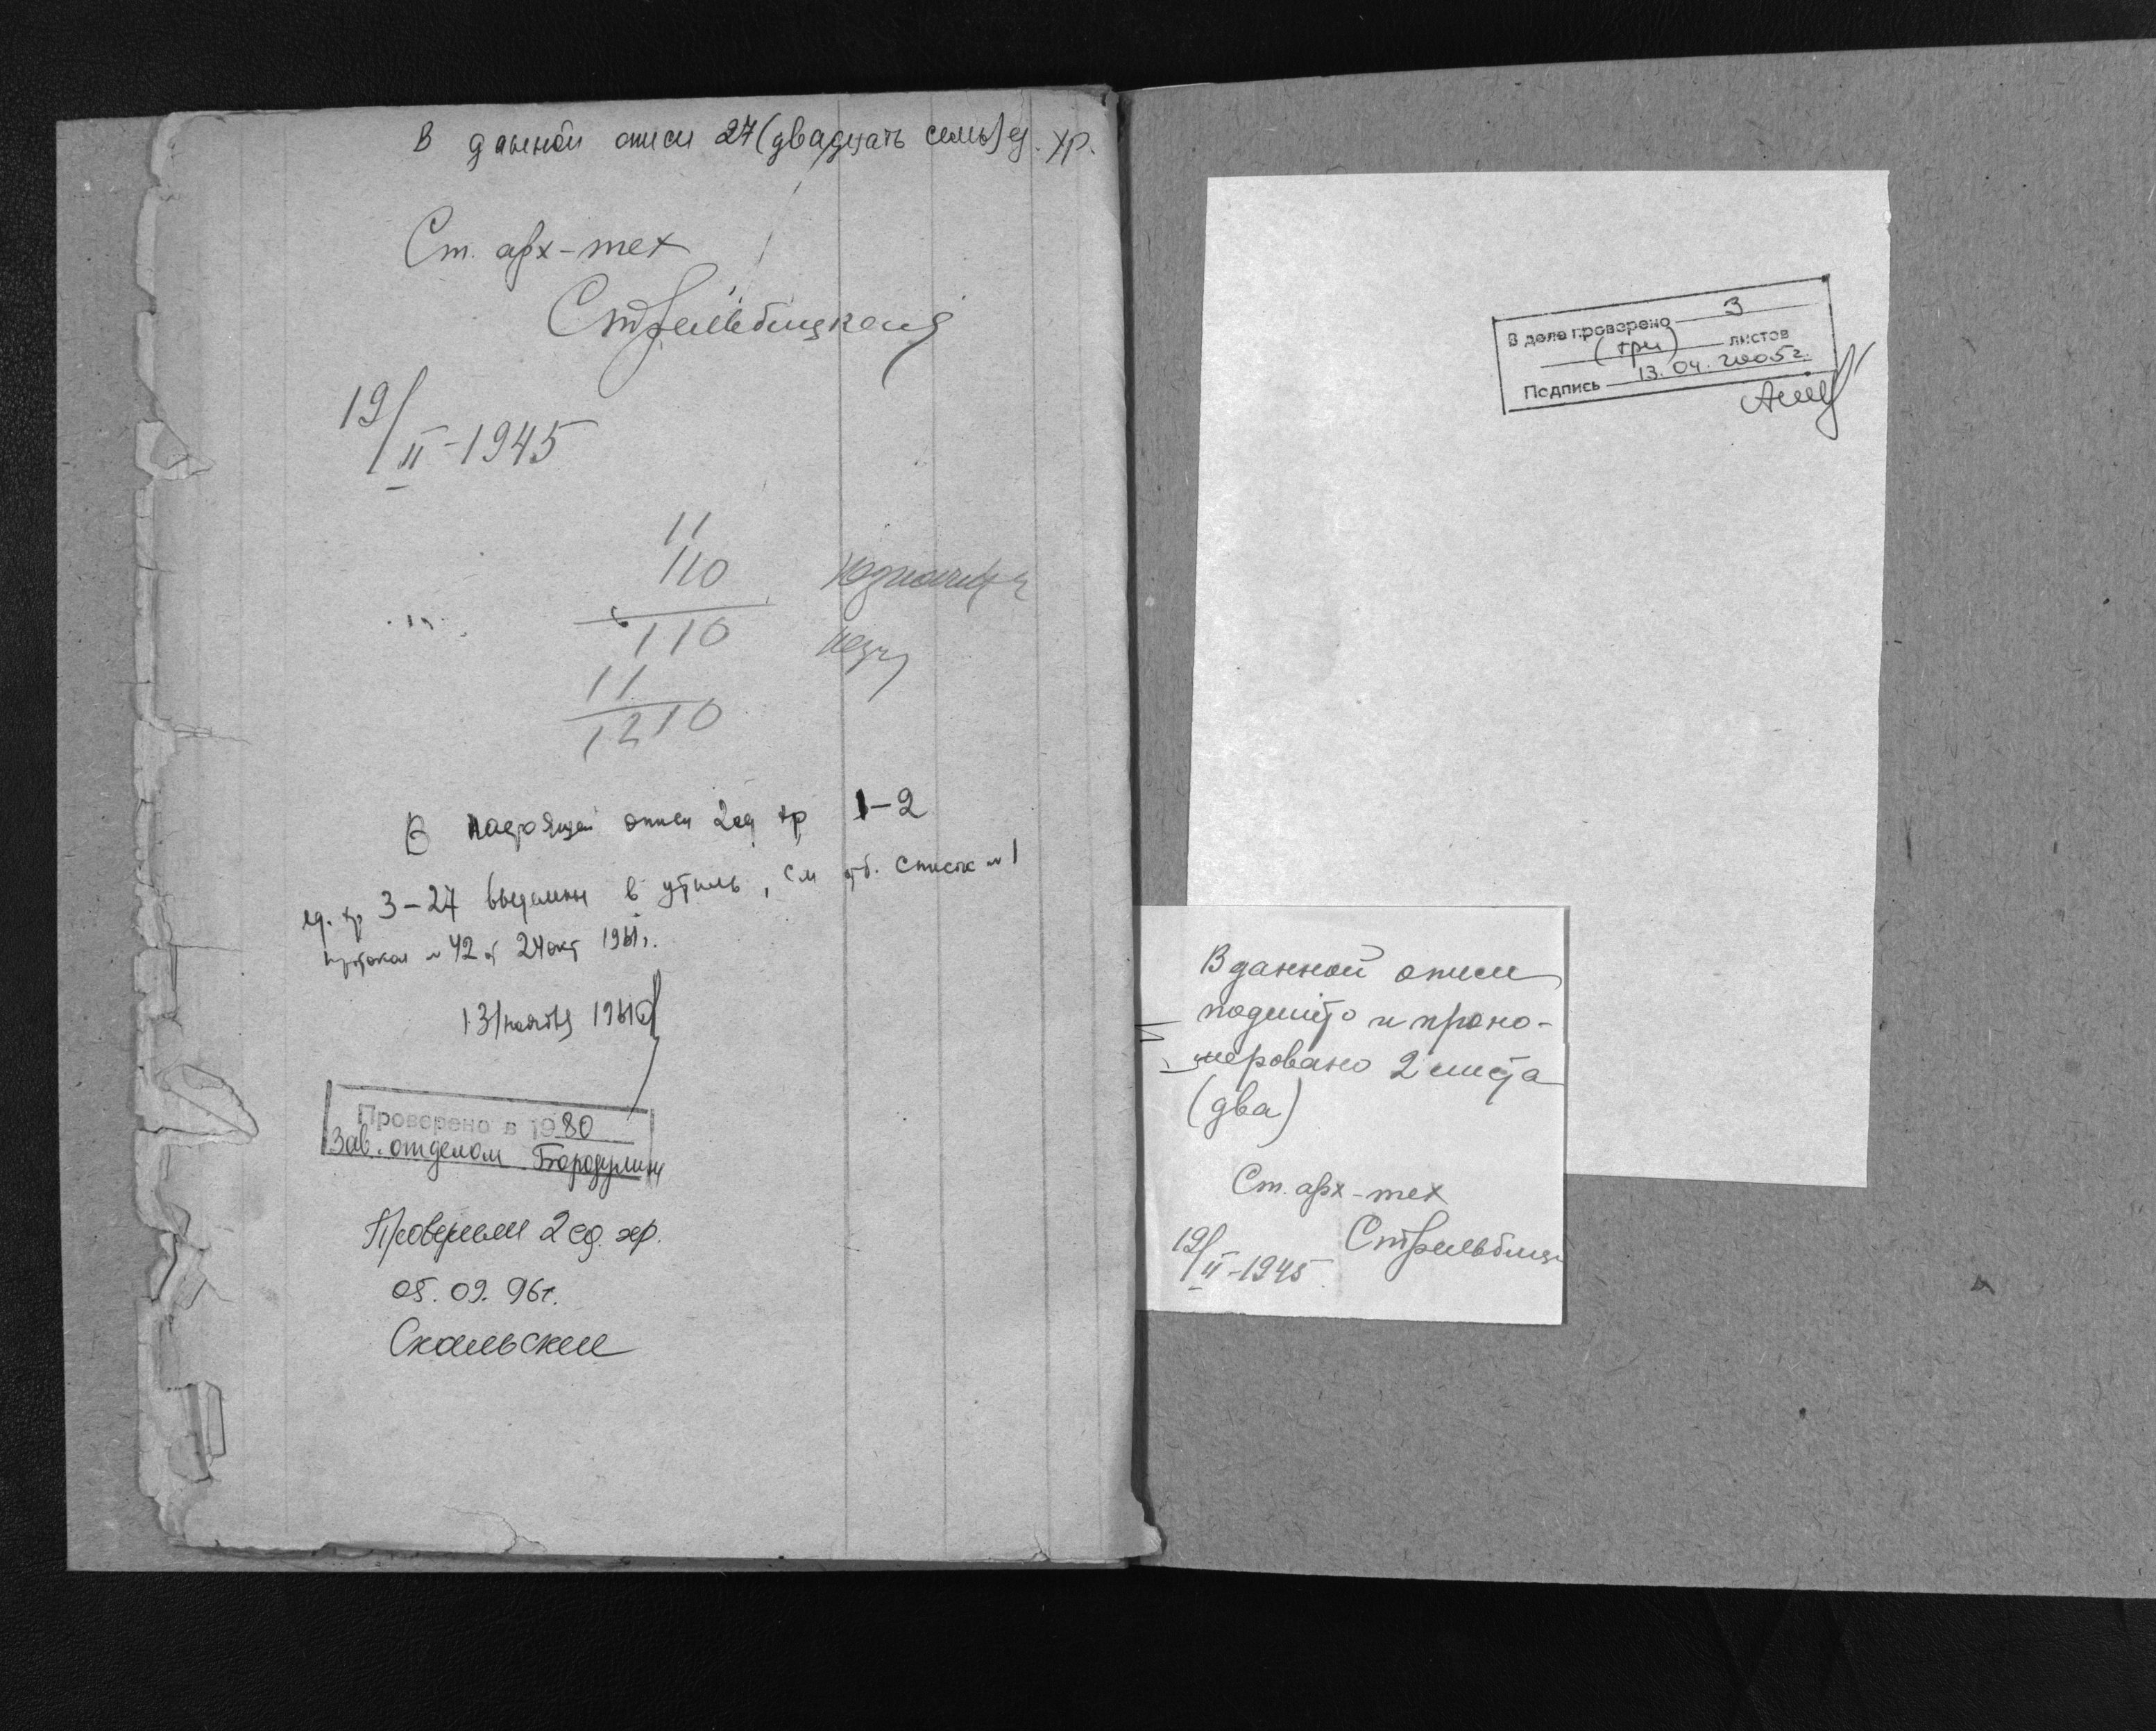 В данной описи 27 (двадцать семь) ед. хр.
Ст. арх-тех
Стрельбицкая
19/II-1945
11
110
110
11
1210
В настоящей описи 2 ед хр 1-2
ед. хр 3-27 выделены в утиль, см отб. список № 1
протокол № 42 от 24 окт 1961 г.
13/ноября 1961
Проверено в 1980
Зав. отделом Бородулина
Проверили 2 ед. хр.
05. 09. 96г.
Скальский
В деле проверено 3
(три) листов
Подпись 13. 04. 2005г.
В данной описи
подшито и проно-
меровано 2 листа
(два)
Ст. арх-тех
Стрельбиц
19/II-1945